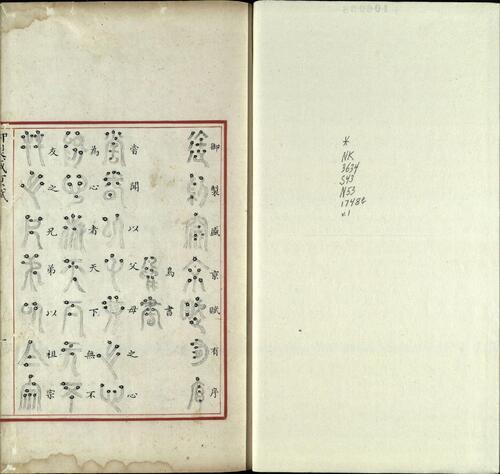 御製盛京賦有序
鳥書
嘗聞以父母之心
為心者天下無不
友之兄弟以祖宗
御製盛京賦
一
*
NK
3634
S43
N53
1748a
v.1